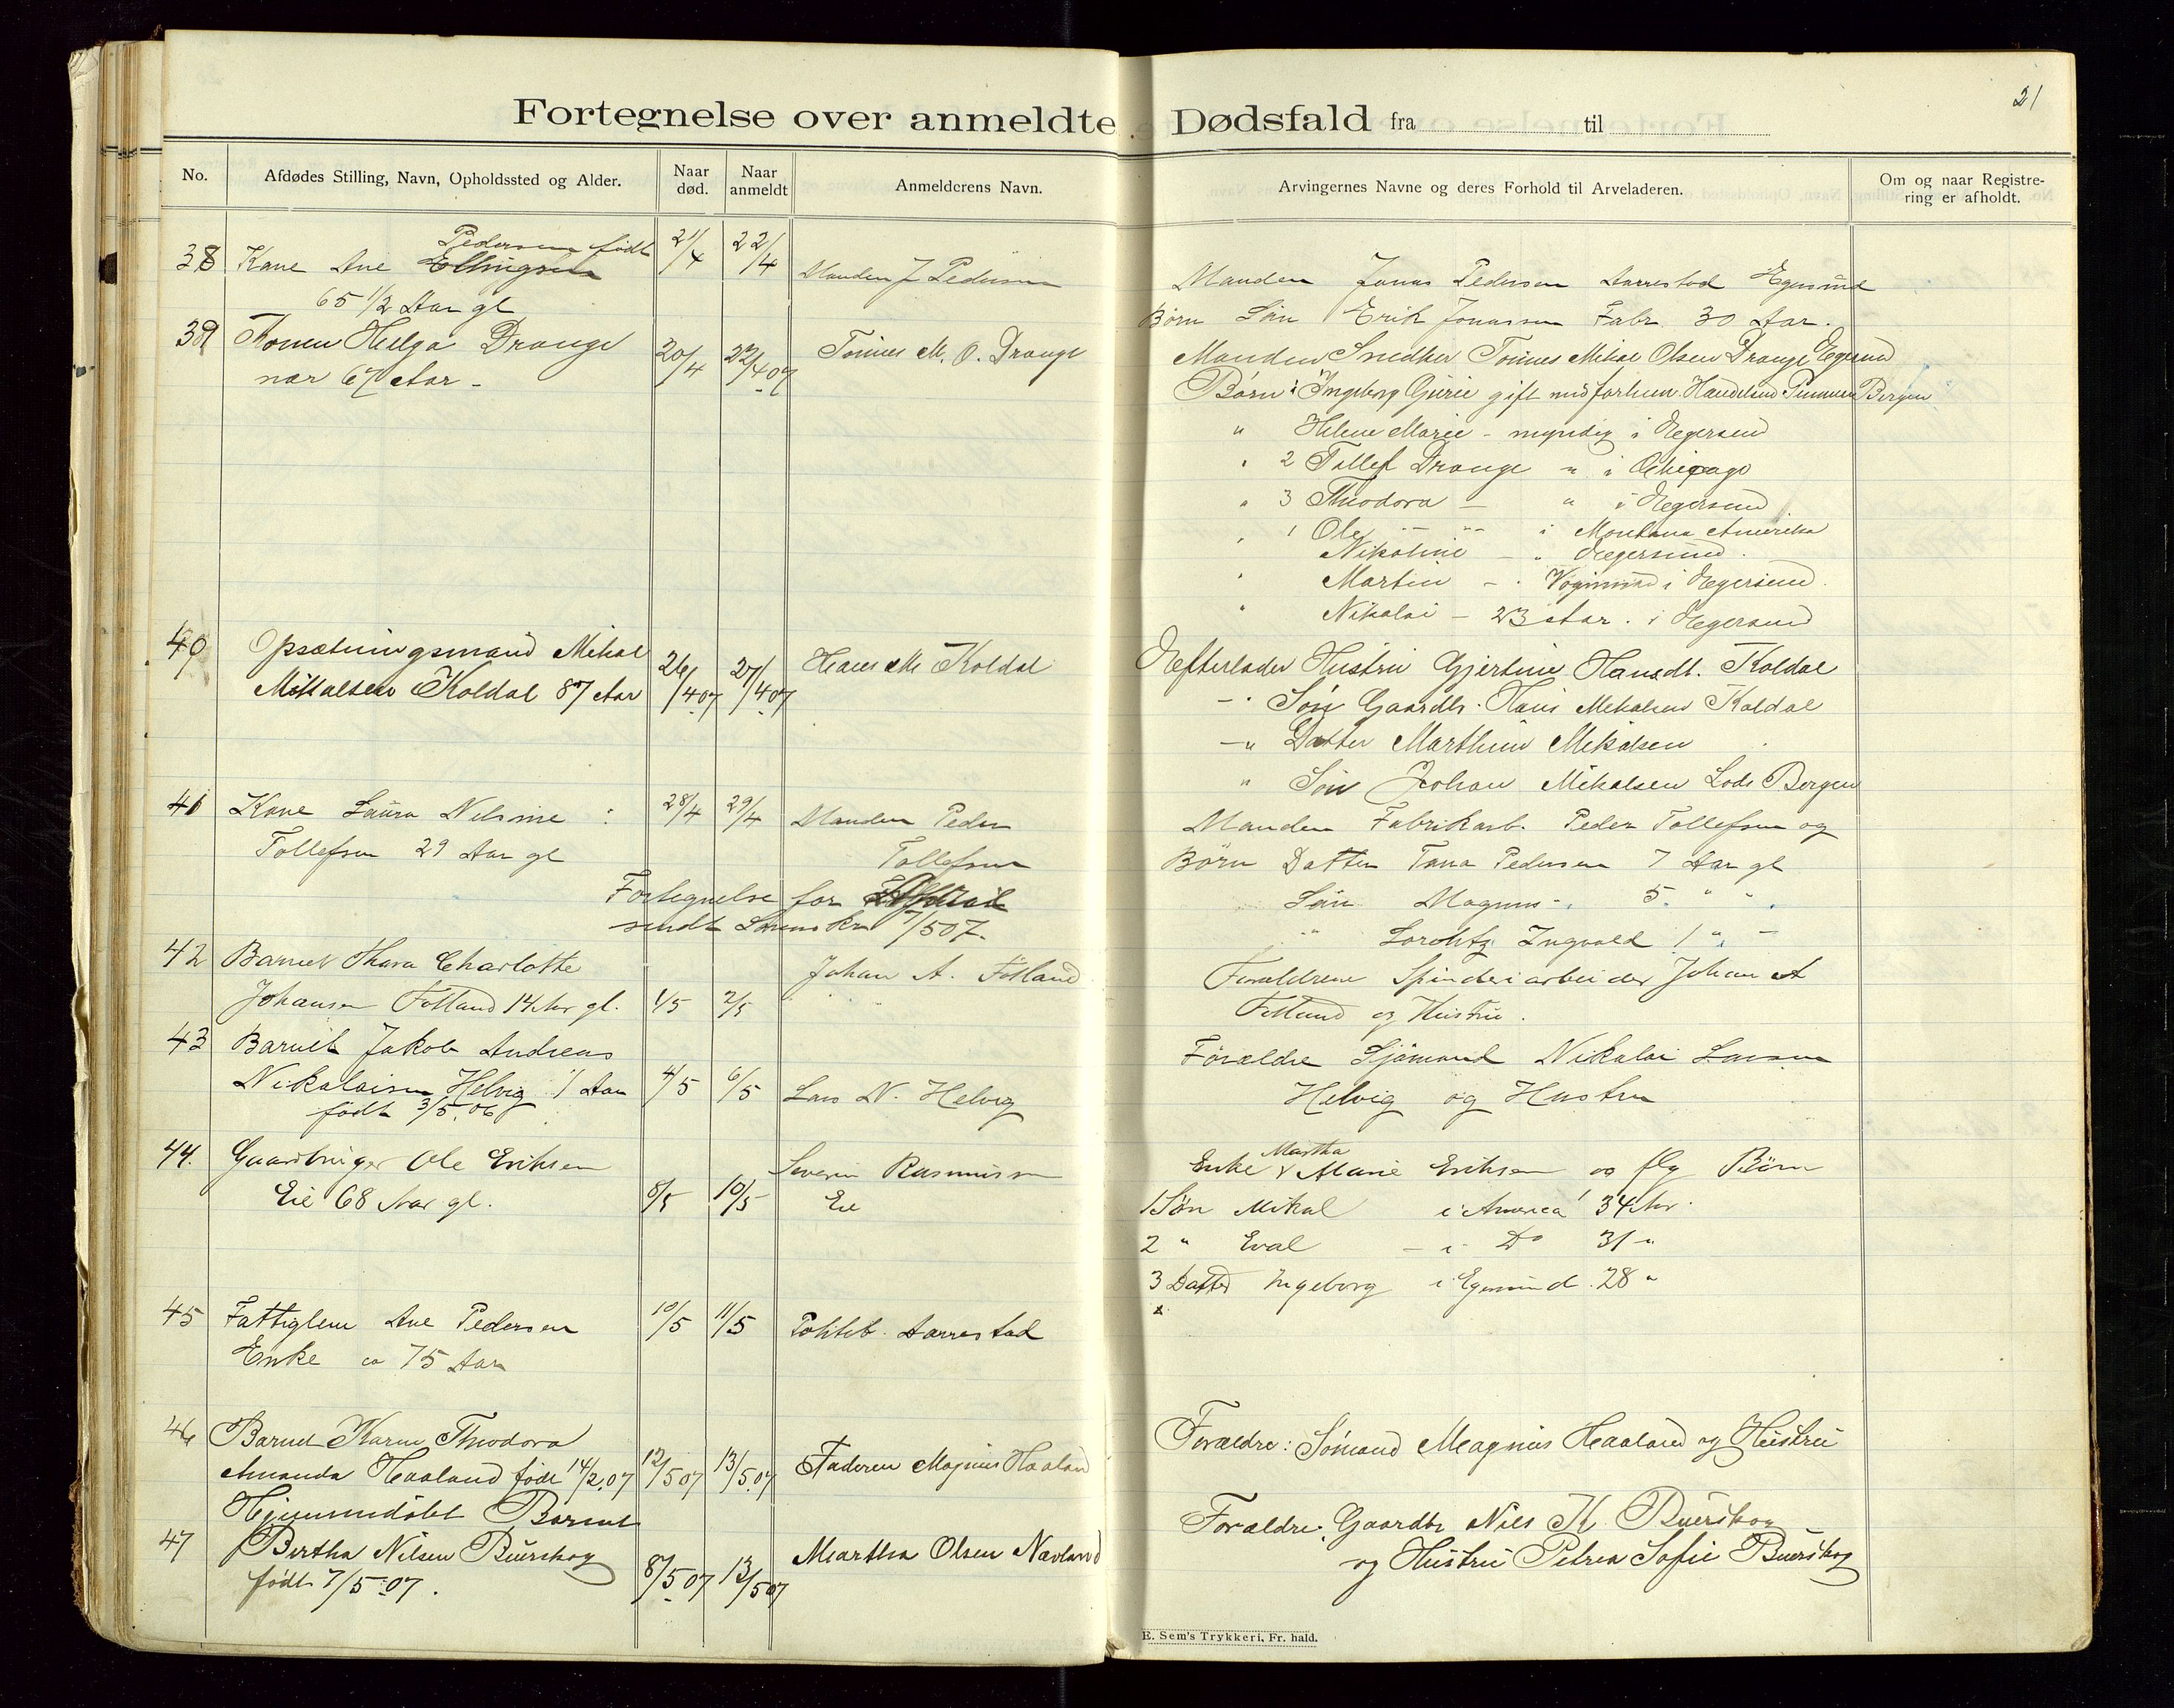 21
Fortegnelse over anmeldte Dødsfald fra til
No. Afdødes Stilling, Navn, Opholdssted og Alder. Naar død. Naar anmeldt Anmelderens Navn. Arvingernes Navne og deres Forhold til Arveladeren. Om og naar Registrering er afholdt.
Pedersen født
38 Kone Ane Ellingsen 21/4 22/4 Manden J Pedersen
65 1/2 Aar gl
Manden Jonas Pedersen Aarrestad Egersund
Børn Søn Erik Jonassen Fabr. 30 Aar.
39 Konen Helga Drange 20/4 22/4 07 Tønnes M. O. Drange
nær 67 Aar -
Manden Snedker Tønnes Mikal Olsen Drange Egersund
Børn: Ingeborg Gurie gift med forhen. Handelsmd. Bergen
" Helene Marie - myndig i Egersund
" 2 Tollef Drange " i Chicago
" 3 Theodora - " i Egersund
" 1 Ole - " - i Montana Amerika
Nikoline - " Egersund.
" Martin - " i Egersund.
" Nikolai - 23 Aar. i Egersund
40 Opsætningsmand Mikal
Mikalsen Koldal 87 Aar 26/4 07 27/4 07 Hans M Koldal
Efterlader Hustru Gjertine Hansdt. Koldal
- " Søn Gaardbr. Hans Mikalsen Koldal
- " Datter Marthine Mikalsen
" Søn Johan Mikalsen Lods Bergen
41 Kone Laura Nilsine 28/4 29/4 Manden Peder
Tollefsen 29 Aar gl Tollefsen
Manden Fabrikarb. Peder Tollefsen og
Børn Datter Tana Pedersen 7 Aar gl
Søn Magnus - " 5 " "
" Ingvald 1 " -
Fortegnelse for
sendt 7/5 07.
42 Barnet Thora Charlotte
Johansen Fotland 14 Aar gl. 1/5 2/5 Johan A. Fotland
Forældrene Spinderiarbeider Johan A
Fotland og Hustru.
43 Barnet Jakob Andreas
Nikolaisen Helvig 1 Aar 4/5 6/5 Lars N. Helvig
født 3/5.06
Forældre Sjømand Nikolai Larsen
Helvig og Hustru
44. Gaardbruger Ole Eriksen Severin Rasmussen
Eie 68 Aar gl. 8/5 10/5 Eie
Martha
Enke Marie Eriksen og flg Børn
1 Søn Mikal i America 34 Aar.
2 " Eval - i Do 31 "
3 Datter Ingeborg i Egersund. 28 "
45 Fattiglem Ane Pedersen 10/5 11/5 Politib. Aarrestad
Enke ca 75 Aar
46 Barnet Karen Theodora
Amanda Haaland født 14/2.07 12/5 07 13/5.07 Faderen Magnus Haaland
Forældre: Sømand Magnus Haaland og Hustru
Hjemmedøbt Barnet
47 Bertha Nilsen Buerskog
født 7/5 07. 8/5 07 13/5 07 Martha Olsen Navland
Forældre: Gaardbr Nils H. Buerskog
og Hustru Petrea Sofie Buerskog
E. Sem's Trykkeri, Fr. hald.